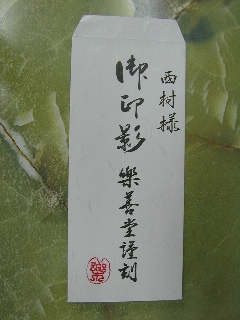 西村様
御印影 樂善堂謹刻